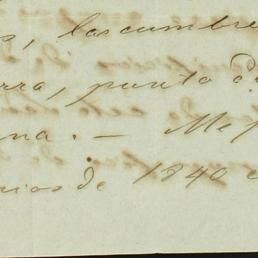 s, las cumbre
rra, punto d
na. — Me p
rios de 1840 c